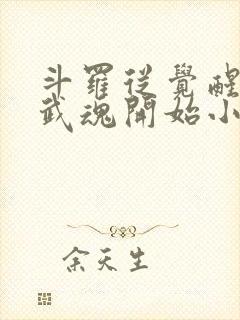 斗羅從覺醒
武魂開始小
余天生